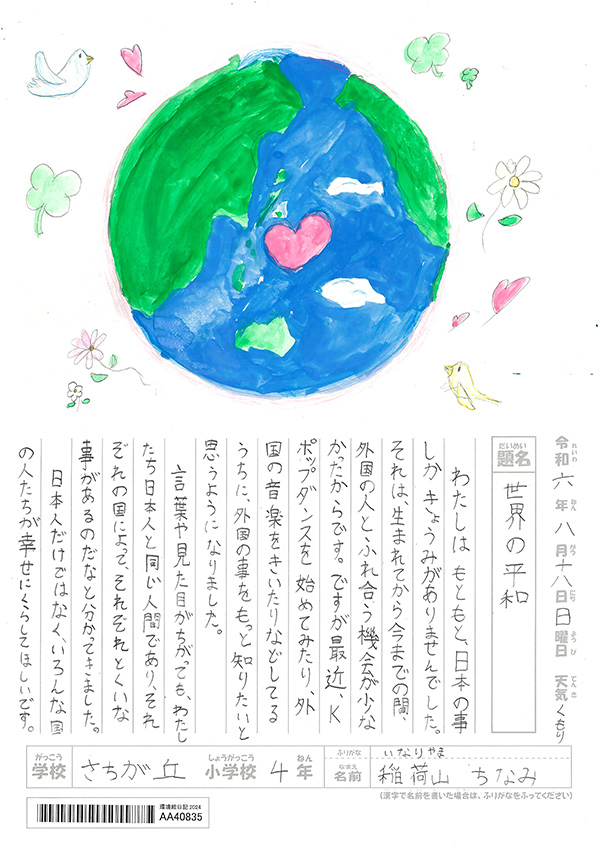 令和六年八月十八日日曜日 天気くもり
れいわ ねん がつ にち ようび てんき
だいめい
題名 世界の平和
わたしはもともと、日本の事
しかきょうみがありませんでした。
それは、生まれてから今までの間、
外国の人とふれ合う機会が少な
かったからです。ですが最近、K
ポップダンスを始めてみたり、外
国の音楽をきいたりなどしてる
うちに、外国の事をもっと知りたいと
思うようになりました。
言葉や見た目がちがっても、わたし
たち日本人と同じ人間であり、それ
ぞれの国によって、それぞれとくいな
事があるのだなと分かってきました。
日本人だけではなく、いろんな国
の人たちが幸せにくらしてほしいです。
がっこう しょうがっこう ねん
学校 さちが丘 小学校 4年
ふりがな いなりやま
なまえ
名前 稲荷山 ちなみ
(漢字で名前を書いた場合は、ふりがなをふってください)
環境絵日記2024
AA40835